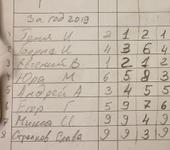 За год 2019
1 Геня И 2 1 2 1
4 3 6 4
3 Евгений В. 1 2 1 2
4 Юра М 6 5 8 3
5 Андрей А 3 4 5 5
6 Егор Г 5 9 7 6
7 Миша Ц 9 9 4 9
8 Слава 9 9 3 9